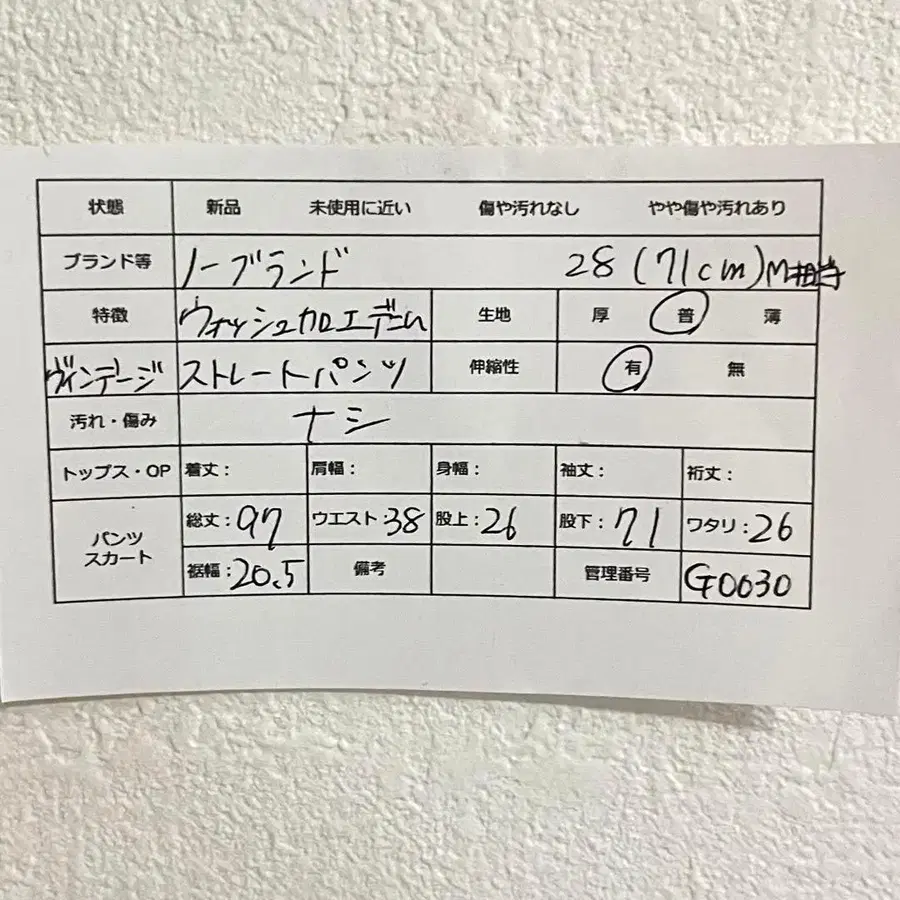 状態 新品 未使用に近い 傷や汚れなし やや傷や汚れあり
ブランド等 ノーブランド 28 (71cm) M相当
特徴 ウォッシュカロエデニム 生地 厚 普 薄
ヴィンテージ ストレートパンツ 伸縮性 有 無
汚れ・傷み ナシ
トップス・OP 着丈： 肩幅： 身幅： 袖丈： 裄丈：
パンツ スカート 総丈：97 ウエスト：38 股上：26 股下：71 ワタリ：26
裾幅：20.5 備考 管理番号 G0030